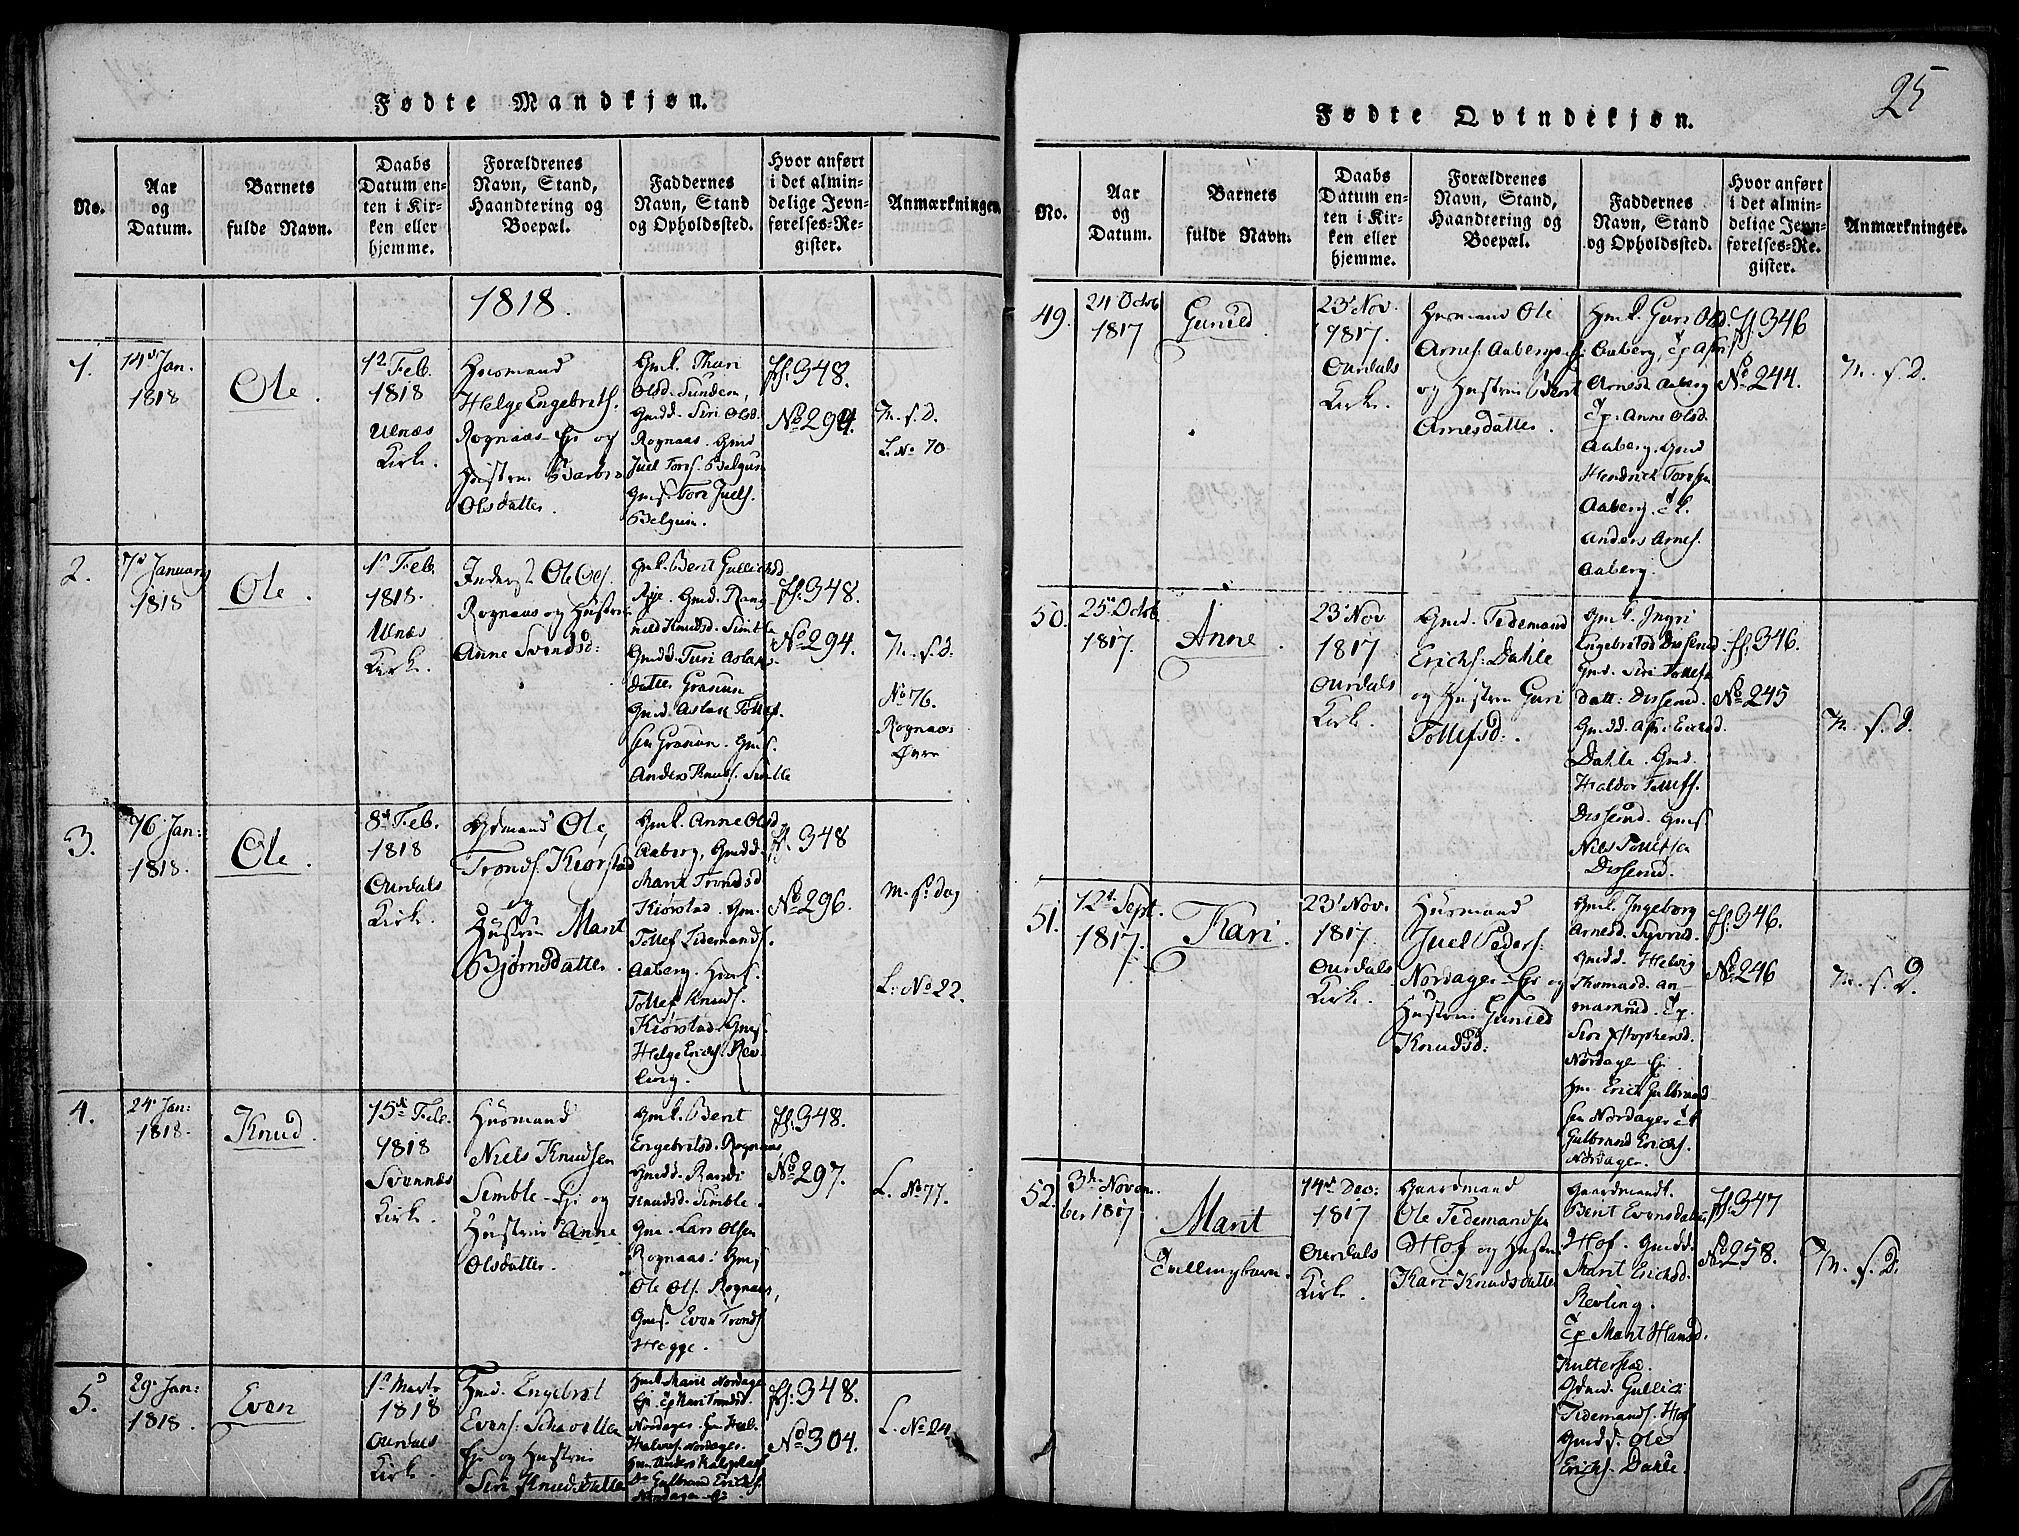 Fødte Mandkjøn.
No.
Aar
og
Datum.
Barnets
fulde Navn.
Daabs
Datum en-
ten i Kir-
ken eller
hjemme.
Forældrenes
Navn, Stand,
Haandtering og
Boepæl.
Faddernes
Navn, Stand
og Opholdssted.
Hvor anført
i det almin-
delige Jevn-
førelses-Re-
gister.
Anmærkninger.
1818.
1.
14d Jan.
1818
Ole.
1d Feb.
1818
Ulnæs
Kirke.
Huusmand
Helge Engebrits.
Rognaas Ejr og
Hustrue Barbro
Olsdatter.
Gmk. Thuri
Olsd. Sundem,
Gmdd. Siri Olsd.
Rognaas. Gmd
Juel Tors. Belgum
Gms. Tore Juels.
Belgum.
ff. 348.
No 294.
M. f. D.
L. No 70
2.
7d January
1818
Ole.
1d Feb.
1818.
Ulnæs
Kirke.
Inderst Ole Ols.
Rognaas og Hustrue
Anne Svendsd:
Gmk. Berit Gullichsd
Rye. Gmd. Rang-
nild Knudsd. Simble
Gmdd. Turi Aslaks-
datter Grasun
Gmd. Aslak Tollef-
sen Grasun. Gms.
Anders Knuds. Simble
ff. 348.
No 294.
M. f. D.
No 76.
Rognaas
Øvre
3.
16. Jan:
1818.
Ole.
8d Feb.
1818
Ourdals
Kirke.
Gdmand Ole
Tronds. Kiørstad
og
Hustrue Marit
Bjørnsdatter.
Gmk. Anne Olsd
Aaberg, Gmdd.
Marit Trondsd
Kiørstad. Gm.
Tollef Tidemands.
Aaberg.
Tollef Knuds.
Kiørstad. Gms.
Helge Erichs. Rev-
ling.
ff. 348
No 296.
M. f. dag
L: No 22.
4.
24. Jan:
1818.
Knud.
15d Feb.
1818
Svennæs
Kirke.
Husmand
Niels Knudsen
Semble Ejr og
Hustrue Anne
Olsdatter.
Gmk. Berit
Engebritsd. Rognaas,
Gmdd. Randi
Knudsd. Simble.
Gm. Lars Olsen
Rognaas. Gm,
Ole Ols. Rognaas,
Gms. Even Tronds.
Hegge.
ff. 348.
No 297.
L. No 77.
5.
29. Jan:
1818.
Even
1d Marts
1818
Ourdals
Kirke.
Hmd. Engebret
Evens.
Ejr og Hustrue
Siri Knudsdatter
Hmk Marit Nordager
Ejr. Tp Kari Trondsd.
Nordager.
Halvors. Nordager.
Do Gulbrand Erichs.
Nordager Ejr.
ff. 348.
No 304.
L. No 24
Fødte Qvindekjøn.
25
No.
Aar
og
Datum.
Barnets
fulde Navn.
Daabs
Datum en-
ten i Kir-
ken eller
hjemme.
Forældrenes
Navn, Stand,
Haandtering og
Boepæl.
Faddernes
Navn, Stand
og Opholdssted.
Hvor anført
i det almin-
delige Jevn-
førelses-Re-
gister.
Anmærkninger.
49.
24 Octob
1817
Gunild
23d Nov.
1817.
Ourdals
Kirke.
Husmand Ole
Arnes. Aabergs Ejr
og Hustrue Berit
Arnesdatter.
Hmk. Guri Olsd.
Aaberg, Tp Astri
Arnesd. Aaberg
Tp. Anne Olsd.
Aaberg. Gmd
Hendrick Torstsen
Aaberg.
Anders Arnes.
Aaberg.
ff. 346
No 244.
M. f. D.
50.
25. Octob
1817.
Anne.
23 Nov.
1817
Ourdals
Kirke.
Gmd. Tedemand
Erichs. Dahle
og Hustrue Guri
Tollefsd:.
Gmk. Ingri
Engebretsd Disserud
Gmd. Siri Tollefs
datt: Disserud.
Gmdd. Astri Erichsd.
Dahle. Gmd.
Haldor Tollefs.
Disserud. Gms
Niels Tollefsen
Disserud.
ff. 346.
No 245
M. f. D.
51.
12d. Sept.
1817.
Kari.
23d Nov.
1817.
Ourdals
Kirke.
Husmand
Juel Peders:
Nordager Ejr og
Hustrue Gunild
Knudsd:
Gmk. Ingeborg
Arnesd.
Gmdd. Helvig
Thomasd.
Siri
Nordager Ejr
Hm. Erich Gulbrand
sen Nordager
Gulbrand Erichs.
Nordager.
ff. 346.
No 246
M. f. D.
52.
3d. Novem-
ber 1817
Marit
Tvillingbarn.
14d Dec:
1817
Ourdals
Kirke.
Gaardmand
Ole Tedemandsen
Hof og Hustrue
Kari Knudsdatter
Gaardmandk.
Berit Evensdatter
Hof. Gmdd.
Marit Erichsd.
Revling.
Tp Marit Hansd.
Kulterstad.
Gdmd. Gullic
Tidemands. Hof
Gmds. Ole
Erichs. Dahle.
ff. 347
No 258.
M. f. D.